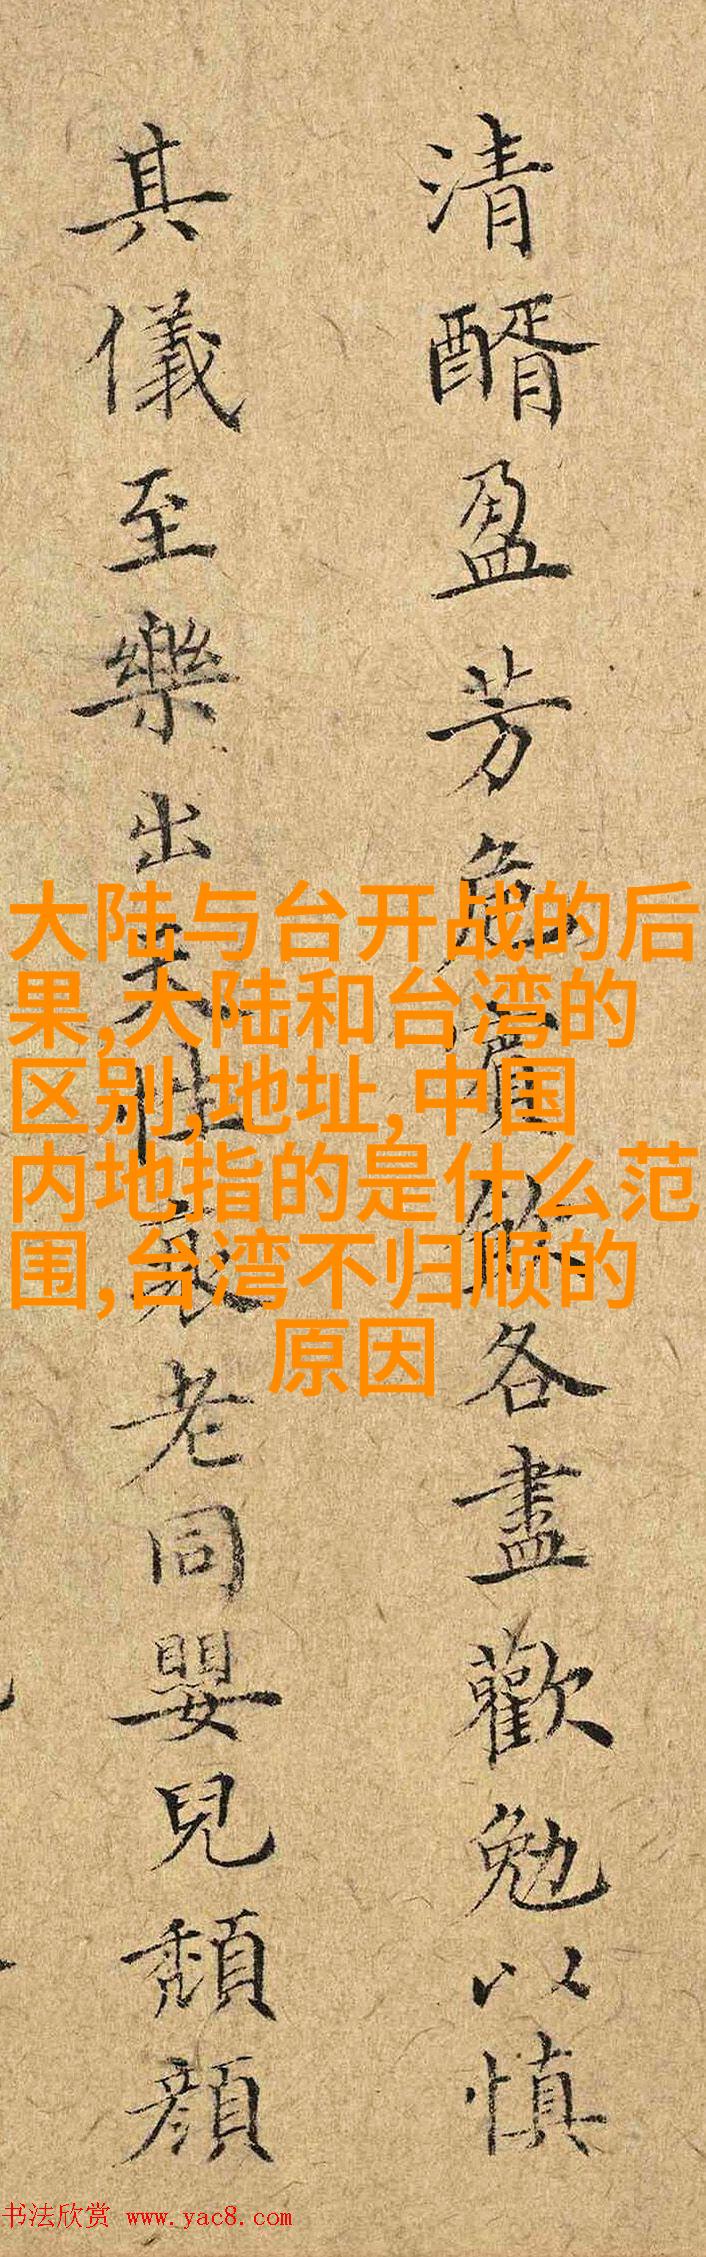 清醑盈芳
各盡歡勉以慎
其儀至樂出天性衰老同嬰兒頽顔
大陆与台开战的后
果,大陆和台湾的
区别,地址,中国
内地指的是什么范
围,台湾不归顺的
原因
书法欣赏 www.yac8.com